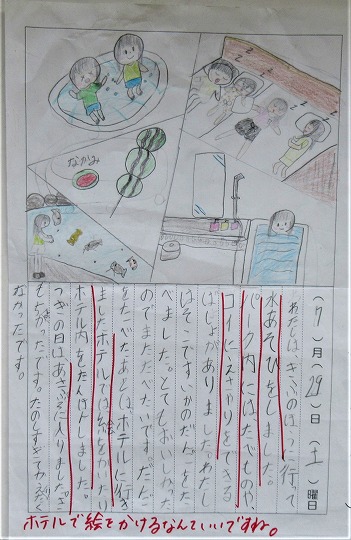 なかみ
(7)月(29)日(土)曜日
わたしは、に行って
水あそびをしました。
パーク内にはたべものや
コイにえさやりをできる
ばしょがありました。わたし
はそこですいかのだんごをた
べました。とてもおいしかった
のでまたたべたいです。だんご
をたべたあとは、ホテルに行き
ましたホテルでは絵をかいたり
ホテル内をたんけんしました。
つぎの日は、あさぶろに入りました。き
もちよかったです。たのしすぎて
なかったです。
ホテルで絵をかけるなんていいですね。